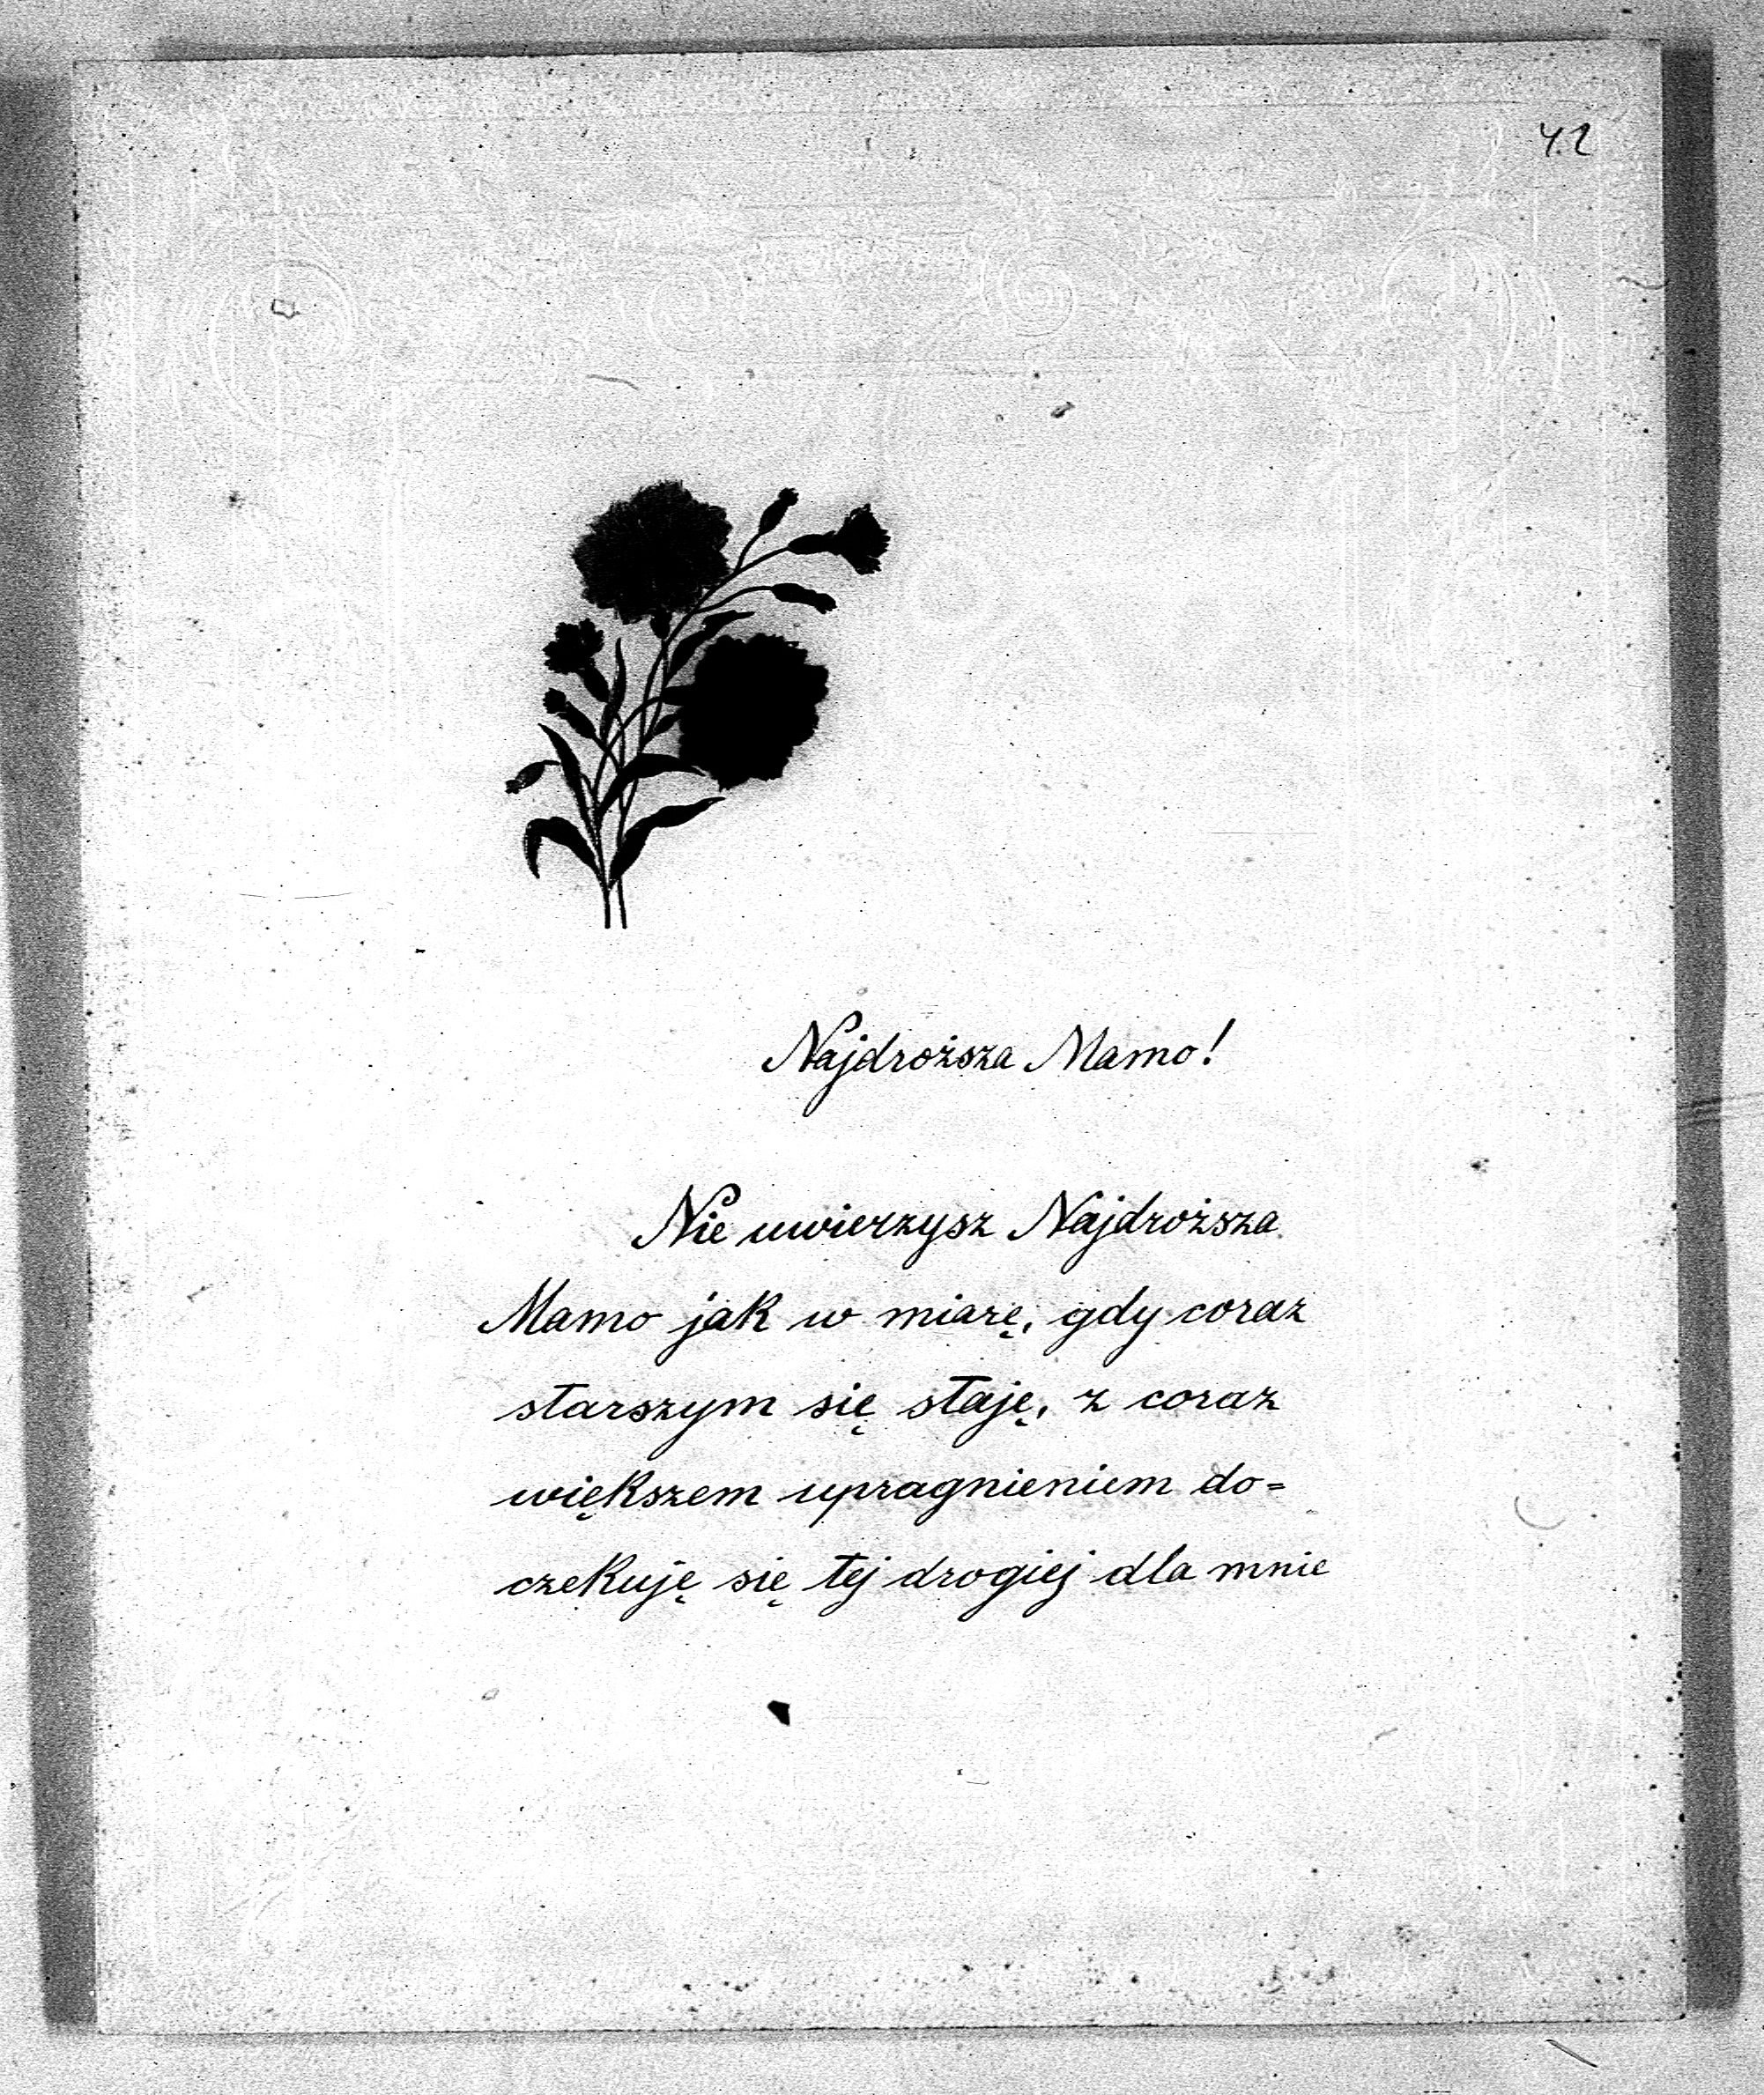 42
Najdroższa Mamo!
Nie uwierzysz Najdroższa
Mamo jak w miarę, gdy coraz
starszym się staję, z coraz
większem upragnieniem do=
czekuję się tej drogiej dla mnie